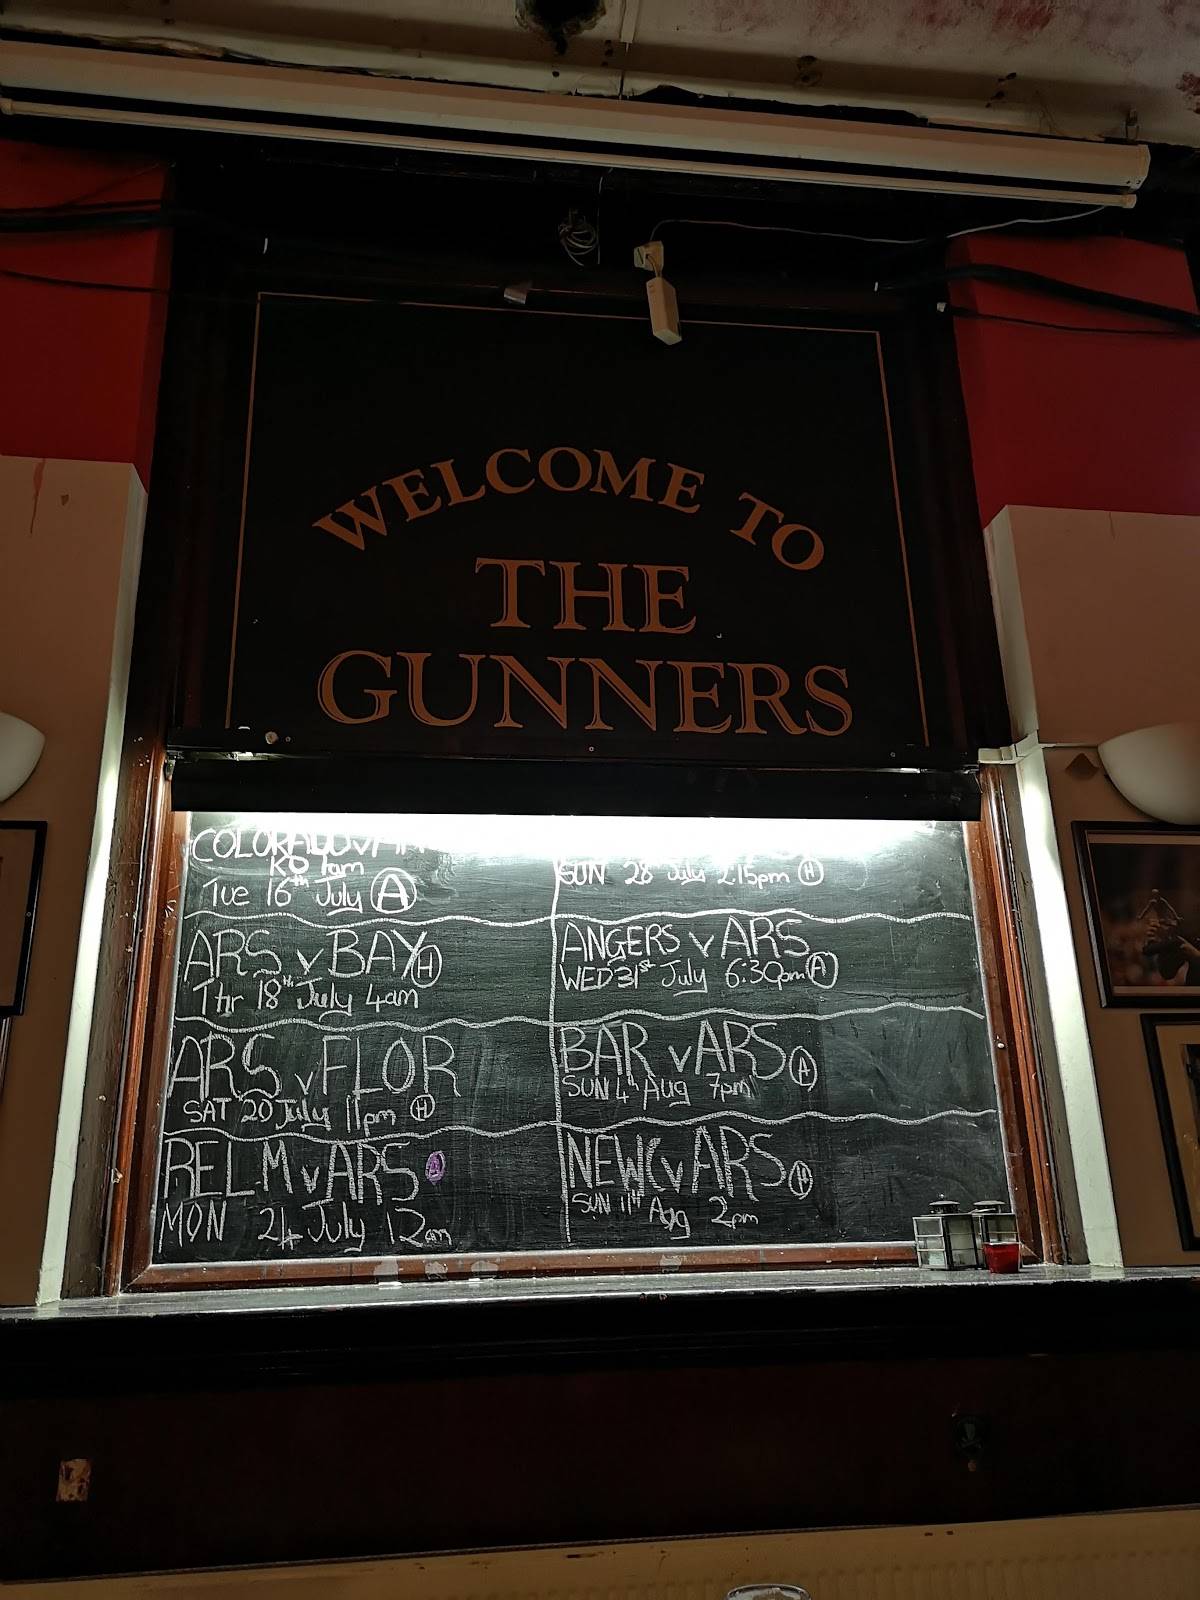 WELCOME TO
THE
GUNNERS
COLORADO V
KO 1am
Tue 16th July A
ARS v BAY H
Thr 18th July 4am
ARS v FLOR
SAT 20 July 11pm H
REL M v ARS A
MON 24 July 12am
SUN 28 July 2:15pm H
ANGERS v ARS
WED 31st July 6:30pm A
BAR v ARS A
SUN 4th Aug 7pm
NEWC v ARS H
SUN 11th Aug 2pm